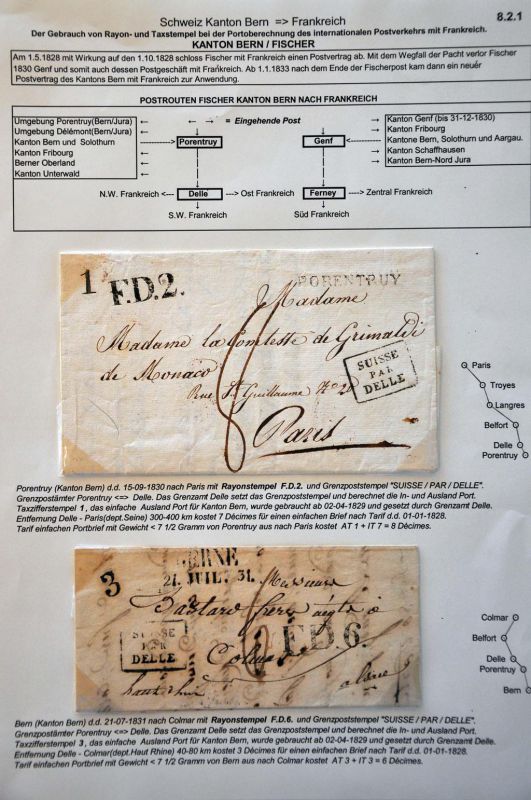 Schweiz Kanton Bern => Frankreich
8.2.1
Der Gebrauch von Rayon- und Taxstempel bei der Portoberechnung des internationalen Postverkehrs mit Frankreich.
KANTON BERN / FISCHER
Am 1.5.1828 mit Wirkung auf den 1.10.1828 schloss Fischer mit Frankreich einen Postvertrag ab. Mit dem Wegfall der Pacht verlor Fischer
1830 Genf und somit auch dessen Postgeschäft mit Frankreich. Ab 1.1.1833 nach dem Ende der Fischerpost kam dann ein neuer
Postvertrag des Kantons Bern mit Frankreich zur Anwendung.
POSTROUTEN FISCHER KANTON BERN NACH FRANKREICH
Umgebung Porentruy(Bern/Jura)
Umgebung Délémont(Bern/Jura)
Kanton Bern und Solothurn
Kanton Fribourg
Berner Oberland
Kanton Unterwald
← → = Eingehende Post
Porentruy
Genf
Kanton Genf (bis 31-12-1830)
Kanton Fribourg
Kantone Bern, Solothurn und Aargau.
Kanton Schaffhausen
Kanton Bern-Nord Jura
N.W. Frankreich <--- Delle ---> Ost Frankreich
Ferney ---> Zentral Frankreich
S.W. Frankreich
Süd Frankreich
1
F.D.2.
PORENTRUY
Madame
Madame la Comtesse de Grimaldi
de Monaco
Rue St Guillaume No
Paris
SUISSE
PAR
DELLE
Paris
Troyes
Langres
Belfort
Delle
Porentruy
Porentruy (Kanton Bern) d.d. 15-09-1830 nach Paris mit Rayonstempel F.D.2. und Grenzpoststempel "SUISSE / PAR / DELLE".
Grenzpostämter Porentruy <=> Delle. Das Grenzamt Delle setzt das Grenzpoststempel und berechnet die In- und Ausland Port.
Taxzifferstempel 1, das einfache Ausland Port für Kanton Bern, wurde gebraucht ab 02-04-1829 und gesetzt durch Grenzamt Delle.
Entfernung Delle - Paris(dept.Seine) 300-400 km kostet 7 Décimes für einen einfachen Brief nach Tarif d.d. 01-01-1828.
Tarif einfachen Portbrief mit Gewicht < 7 1/2 Gramm von Porentruy aus nach Paris kostet AT 1 + IT 7 = 8 Décimes.
3
BERNE
21. JUIL. 31.
Messieurs
frères
à
Colmar
SUISSE
PAR
DELLE
F.D.6.
Colmar
Belfort
Delle
Porentruy
Bern
Bern (Kanton Bern) d.d. 21-07-1831 nach Colmar mit Rayonstempel F.D.6. und Grenzpoststempel "SUISSE / PAR / DELLE".
Grenzpostämter Porentruy <=> Delle. Das Grenzamt Delle setzt das Grenzpoststempel und berechnet die In- und Ausland Port.
Taxzifferstempel 3, das einfache Ausland Port für Kanton Bern, wurde gebraucht ab 02-04-1829 und gesetzt durch Grenzamt Delle.
Entfernung Delle - Colmar(dept.Haut Rhine) 40-80 km kostet 3 Décimes für einen einfachen Brief nach Tarif d.d. 01-01-1828.
Tarif einfachen Portbrief mit Gewicht < 7 1/2 Gramm von Bern aus nach Colmar kostet AT 3 + IT 3 = 6 Décimes.